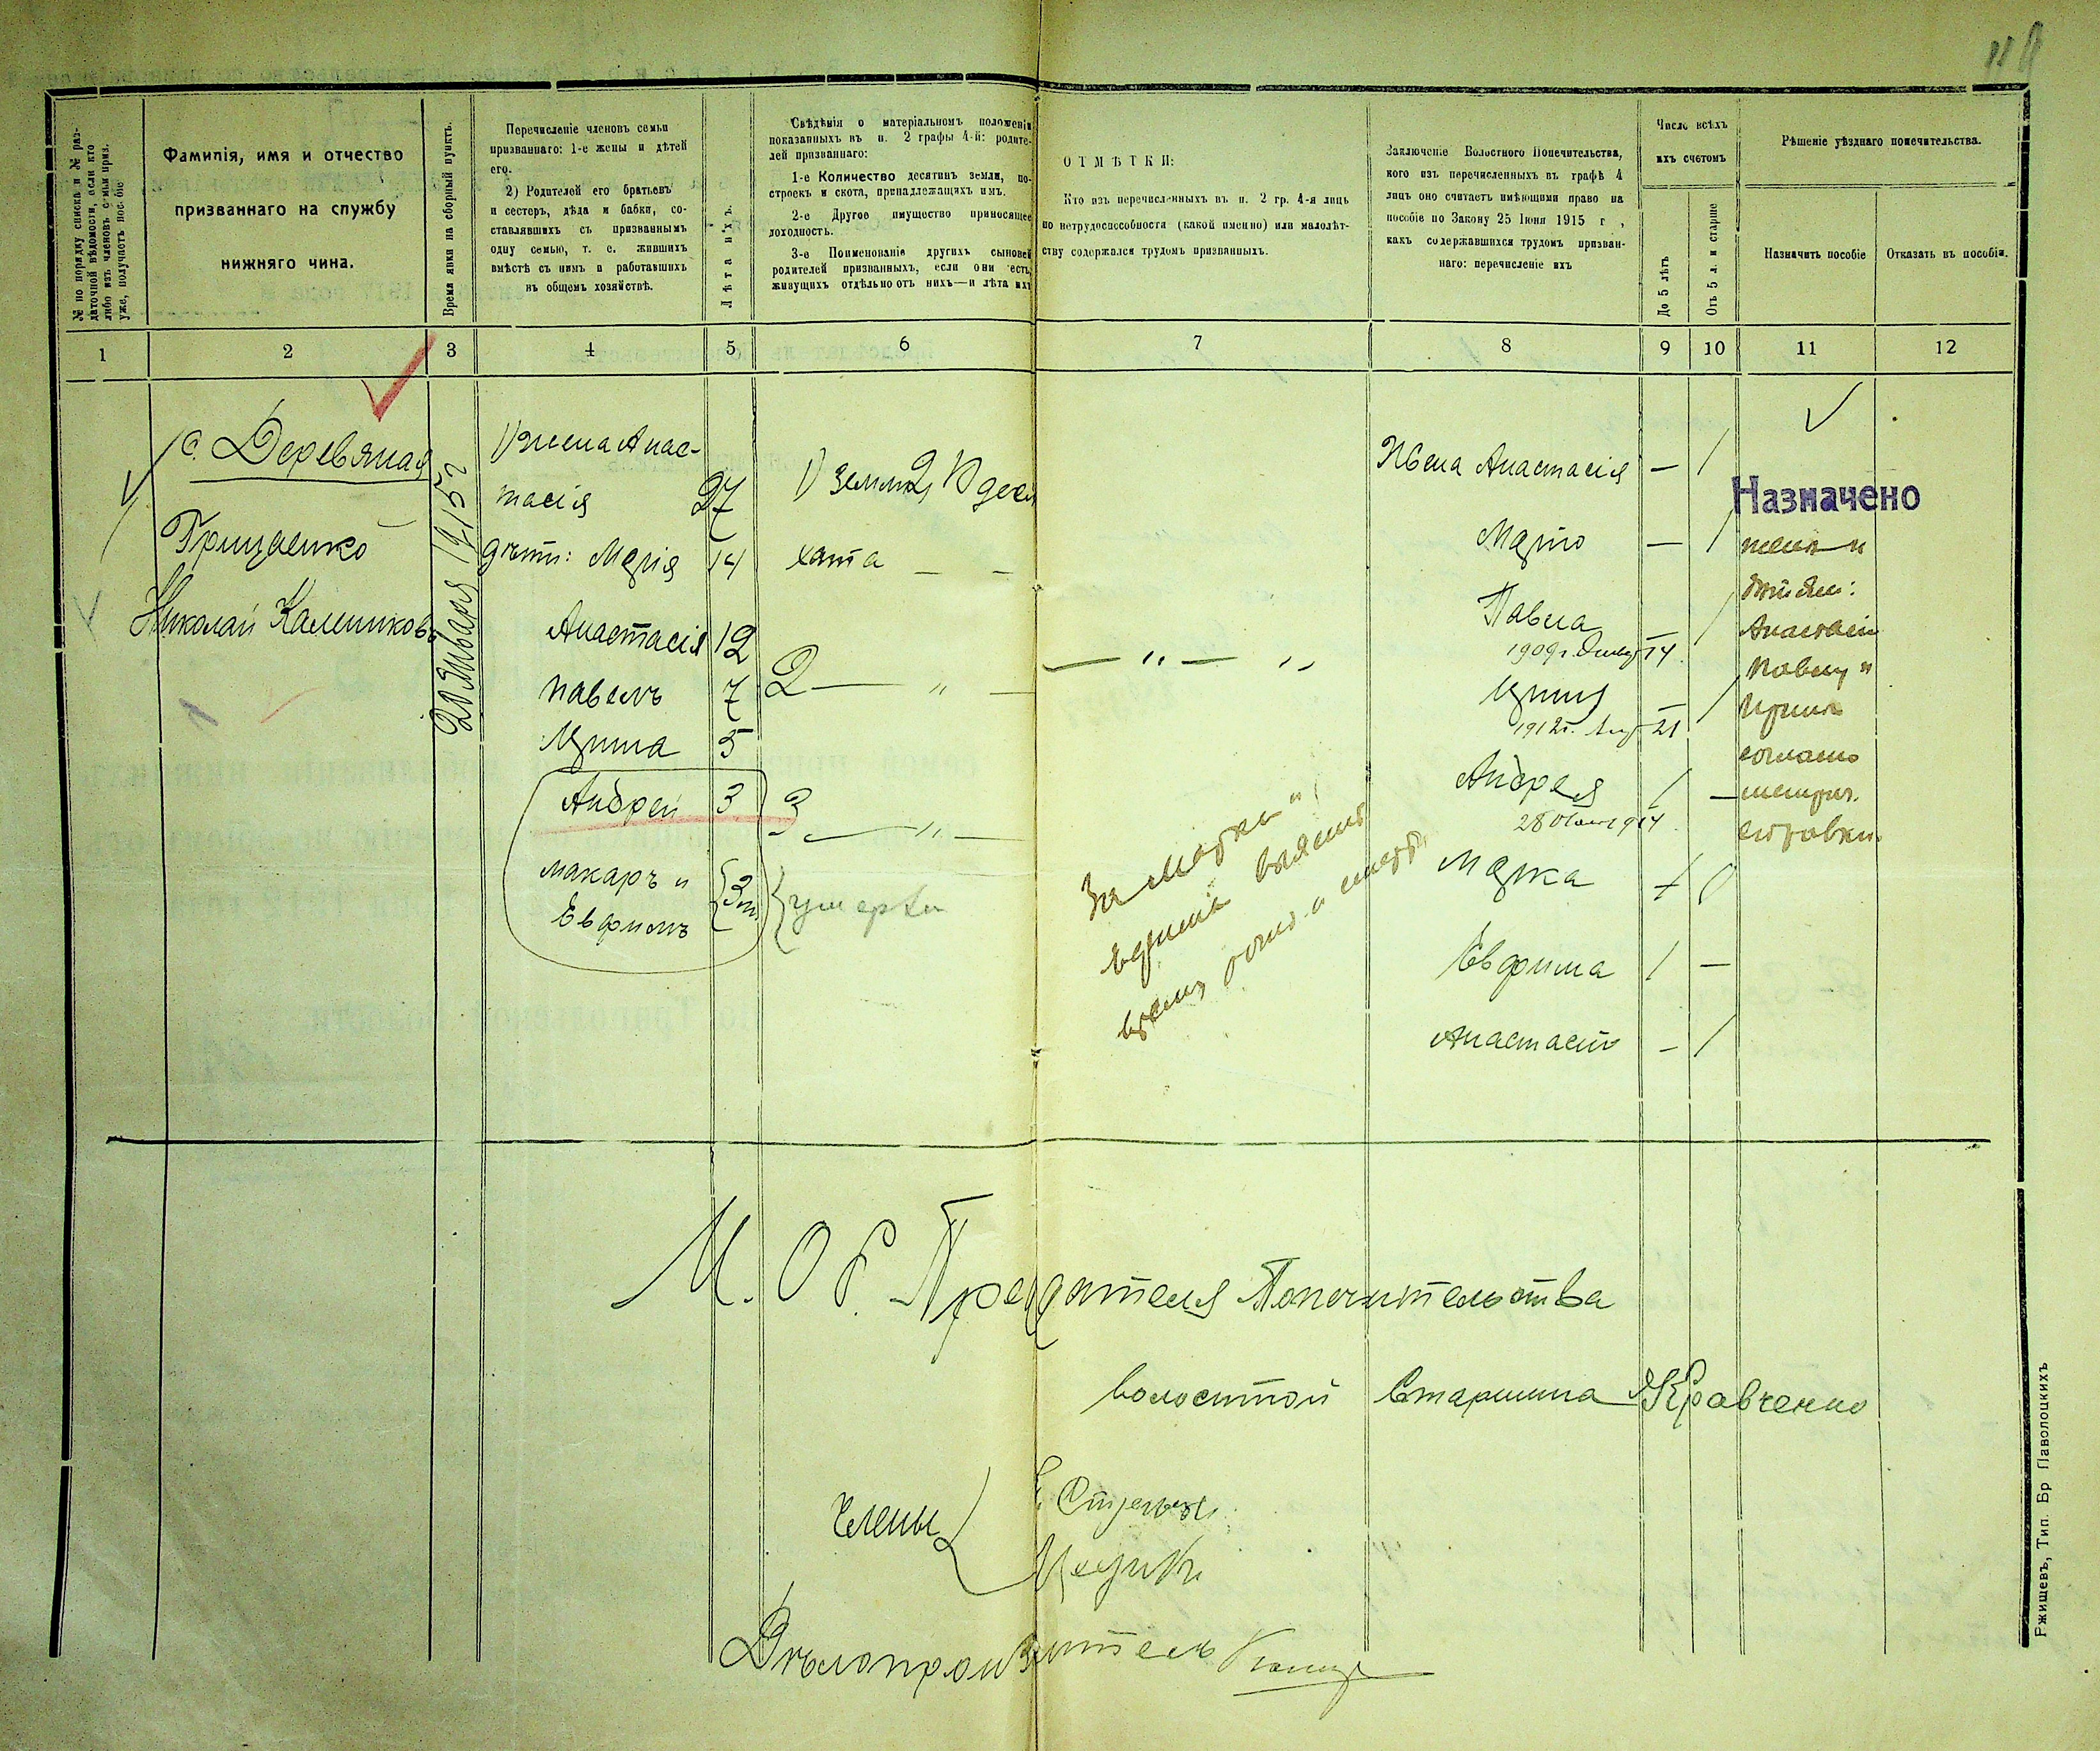 118
№ по порядку списка и № раз-
даточной вѣдомости, если кто
либо изъ членовъ семьи приз.
уже, получаетъ пособіе
Фамилія, имя и отчество
призваннаго на службу
нижняго чина.
Время явки на сборный пунктъ.
Перечисленіе членовъ семьи
призваннаго: 1-е жены и дѣтей
его.
2) Родителей его братьевъ
и сестеръ, дѣда и бабки, со-
ставлявшихъ съ призваннымъ
одну семью, т. е. жившихъ
вмѣстѣ съ нимъ и работавшихъ
въ общемъ хозяйствѣ.
Лѣта ихъ.
Свѣдѣнія о матеріальномъ положеніи
показанныхъ въ п. 2 графы 4-й: родите-
лей призваннаго:
1-е Количество десятинъ земли, по-
строекъ и скота, принадлежащихъ имъ.
2-е Другое имущество приносящее
доходность.
3-е Поименованіе другихъ сыновей
родителей призванныхъ, если они есть,
живущихъ отдѣльно отъ нихъ—и лѣта ихъ
ОТМѢТКИ:
Кто изъ перечисленныхъ въ п. 2 гр. 4-я лицъ
по нетрудоспособности (какой именно) или малолѣт-
ству содержался трудомъ призванныхъ.
Заключеніе Волостного Попечительства,
кого изъ перечисленныхъ въ графѣ 4
лицъ оно считаетъ имѣющими право на
пособіе по Закону 25 Іюня 1915 г ,
какъ содержавшихся трудомъ призван-
наго: перечисленіе ихъ
Число всѣхъ
ихъ счетомъ
До 5 лѣтъ
Отъ 5 л. и старше
Рѣшеніе уѣзднаго попечительства.
Назначить пособіе
Отказать въ пособіи.
1 2 3 4 5 6 7 8 9 10 11 12
с. Деревяная
Грищенко
Николай Калинниковъ
20 Января 1915 г
1) жена Анас-
тасія 27
дѣти: Марія 14
Анастасія 12
Павелъ 7
Ирина 5
Андрей 3
Макаръ и
Евфимъ 3 м.
1) Земли
хата — —
2 — " —
3 — " —
умерли
— " — "
За
время
Жена Анастасія — 1
Марію — 1
Павла — 1
1909 г. 14
Ирину — 1
1912 г. Апр 21
Андрея 1 —
28 Окт 1914
Марка
Евфима 1 —
Анастасію — 1
Назначено
жене и
детям:
Анастасіи
Павлу и
Ирине
согласно
метрич.
справки.
М. О. Р. Предсѣдателя Попечительства
Волостной Старшина Кравченко
Члены
Дѣлопроизводитель
Ржищевъ, Тип. Бр Паволоцкихъ